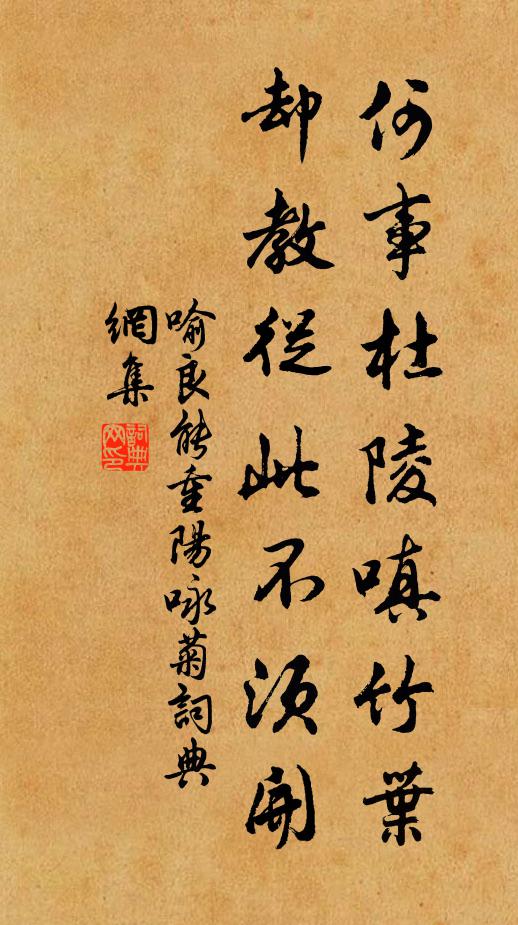 何事杜陵嗔竹葉
却教從此不須開
喻良能重陽咏菊詞典
網集
詞典網印